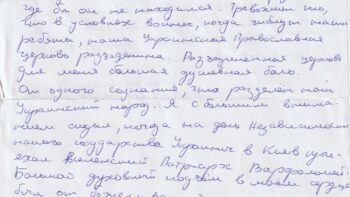 где бы он не находился. Тревожит то,
что в условиях войны, когда гибнут наши
ребята, наша Украинская Православная
церковь разъединена. Разъединенная церковь
для меня большая душевная боль.
От одного сознания, что разделен наш
Украинский народ. Я с большим внима-
нием следил, когда на день Независимости
нашего государства Украины в Киев прие-
хал Вселенский Патриарх Варфоломей
Большой духовный подъем в моем сердце
был от